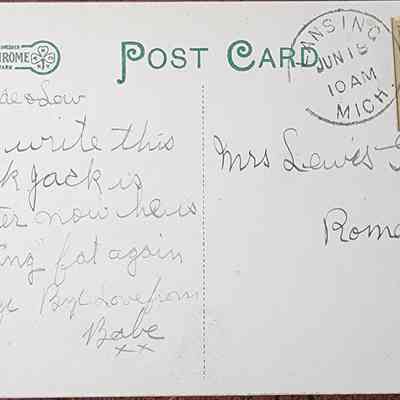 HROME
PARK
POST CARD
NSING
JUN 15
10 AM
MICH.
& Low
write this
k Jack is
ter now he is
ing fat again
Bye Love from
Babe
xx
Mrs Lewis
Rome